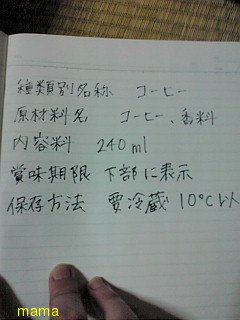 種類別名称 コーヒー
原材料名 コーヒー、香料
内容料 240ml
賞味期限 下部に表示
保存方法 要冷蔵10℃以
mama